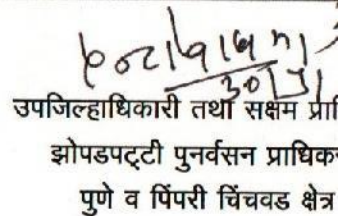 उपजिल्हाधिकारी तथा सक्षम प्राधि
झोपडपट्टी पुनर्वसन प्राधिकर
पुणे व पिंपरी चिंचवड क्षेत्र